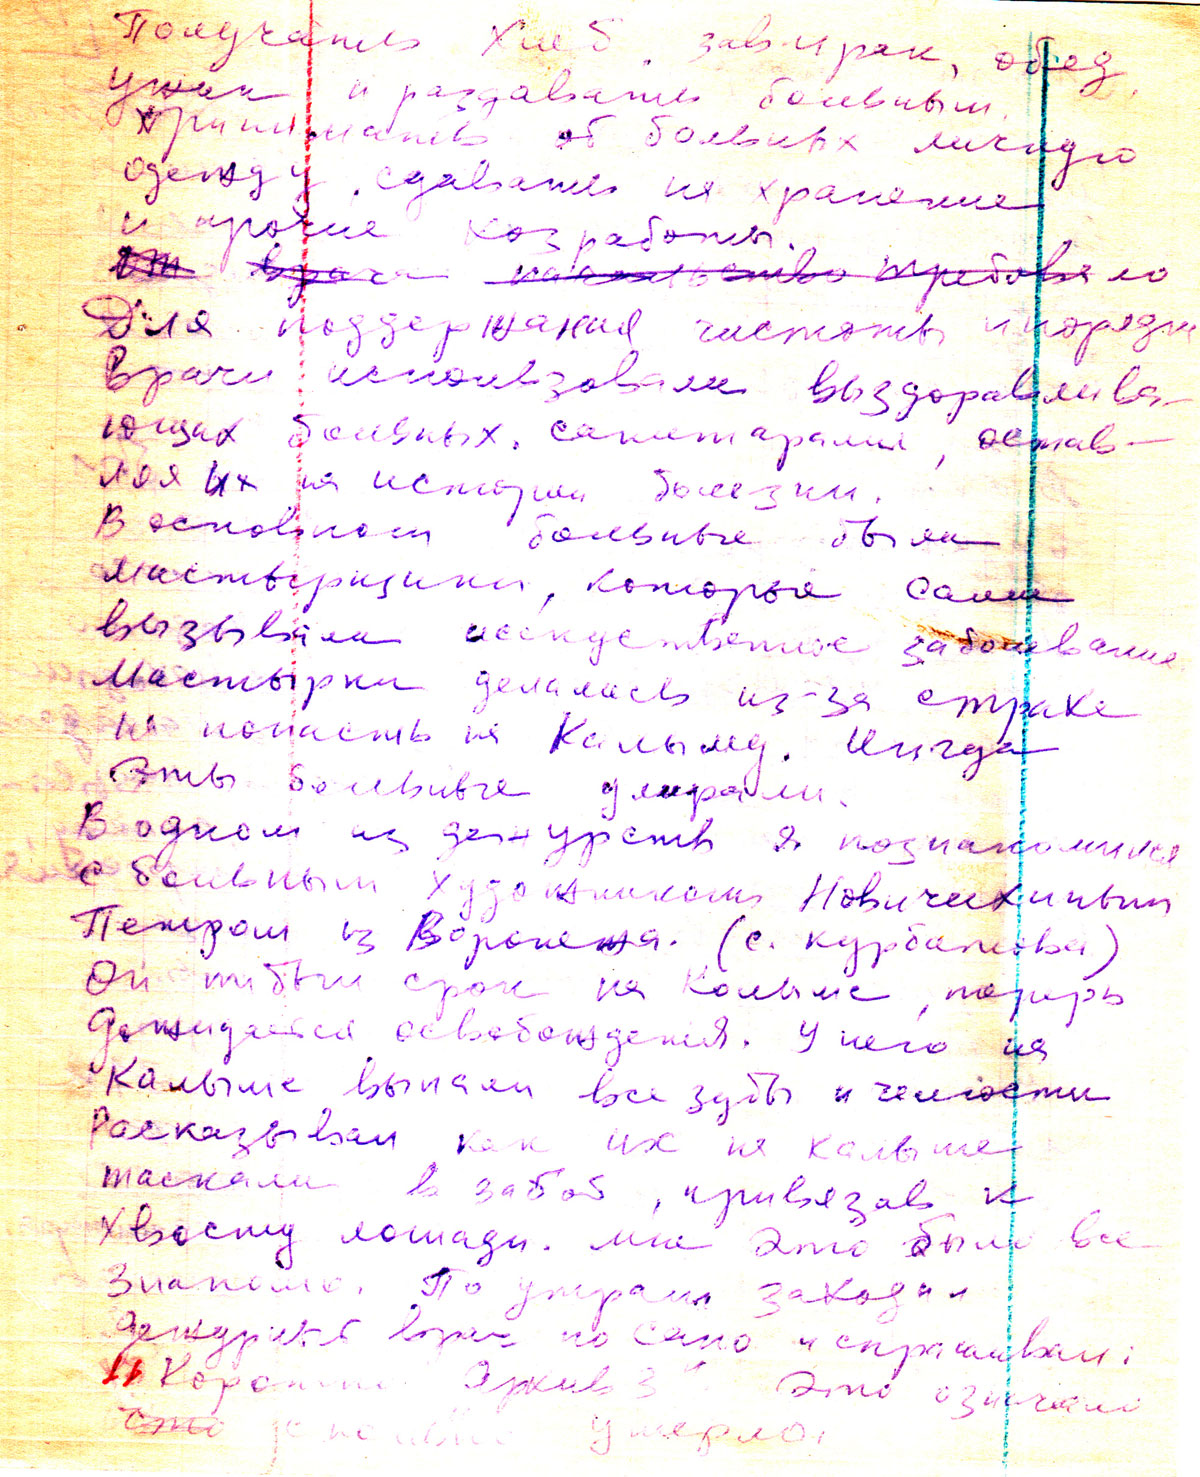 Получать хлеб, завтрак, обед,
ужин и раздавать больным.
Принимать об больных личную
одежду, сдавать на хранение
и прочие хозработы.
От врача начальство требовало
Для поддержания чистоты и порядк
Врачи использовали выздоравлива-
ющих больных. санитарами, остав-
ляя их на истории болезни.
В основном больные были
мастырщики, которые сами
вызывали исскуственное заболевание
Мастырки делались из-за страха
не попасть на Калыму. Иногда
Эты больные умирали.
В одном из дежурств я познакомился
с больным художником Новичихиным
Петром из Воронежа. (с. Курбатова)
Он отбыл срок на Колыме, теперь
Дожидается освобождения. У него на
Калыме выпали все зубы и челюсти
Рассказывал как их на калыме
таскали в забой, привязав к
хвосту лошади. мне это было все
Знакомо. По утрам заходил
дежурный врач по сано и спрашивал:
"Короткин Архив 3" Это означало
сколько умерло.